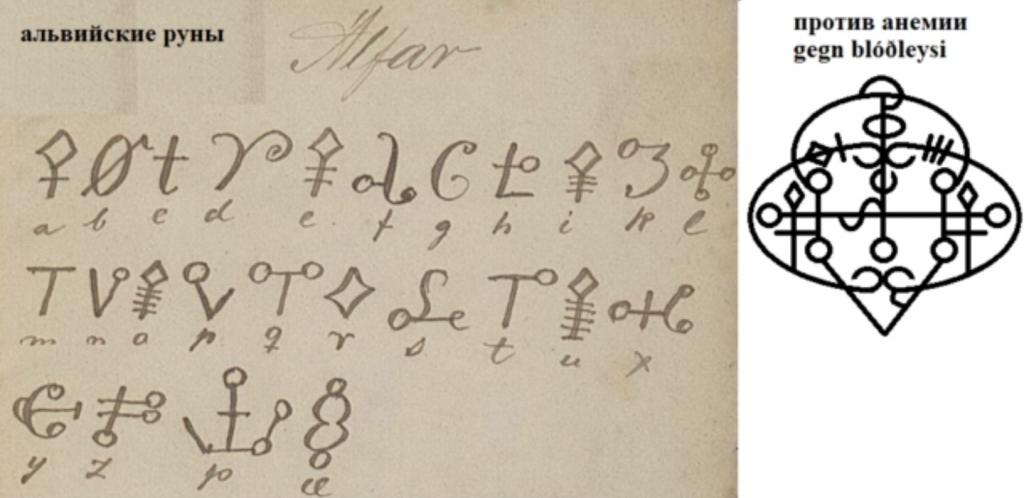 альвийские руны
Alfar
a b c d e f g h i k l
m n o p q r s t u x
y z þ æ
против анемии
gegn blóðleysi